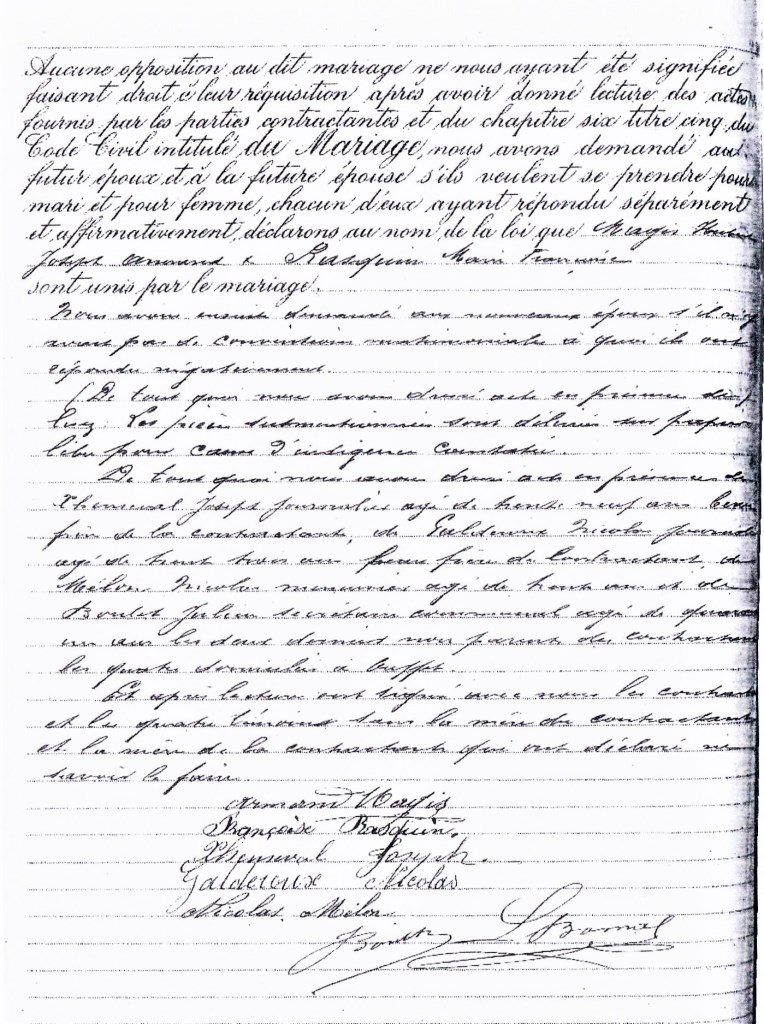 Aucune opposition au dit mariage ne nous ayant été signifiée
faisant droit à leur réquisition après avoir donné lecture des actes
fournis par les parties contractantes et du chapitre six titre cinq du
Code Civil intitulé du Mariage, nous avons demandé au
futur époux et à la future épouse s'ils veulent se prendre pour
mari et pour femme, chacun d'eux ayant répondu séparément
et affirmativement, déclarons au nom de la loi que Magis
Joseph Armand & Rasquin Marie Françoise
sont unis par le mariage.
Nous avons ensuite demandé aux nouveaux époux s'il n'y
avait pas de conventions matrimoniales à quoi ils ont
répondu négativement.
(De tout quoi nous avons dressé acte en présence de
Les pièces susmentionnées sont délivrées sur papier
libre pour cause d'indigence constatée.
De tout quoi nous avons dressé acte en présence de
Xhenseval Joseph journalier agé de trente neuf ans beau
frère de la contractante, de Galderoux Nicolas journalier
agé de trente trois ans beau frère du contractant, de
Milon Nicolas menuisier agé de trente ans et de
Boulet Julien secrétaire communal agé de quarante
un ans les deux derniers non parents des contractants
les quatre domiciliés à Ouffet.
Et après lecture ont signé avec nous les contractants
et les quatre témoins sans la mère du contractant
et la mère de la contractante qui ont déclaré ne
savoir le faire.
Armand Magis
Françoise Rasquin.
Xhenseval Joseph.
Galderoux Nicolas
Nicolas Milon